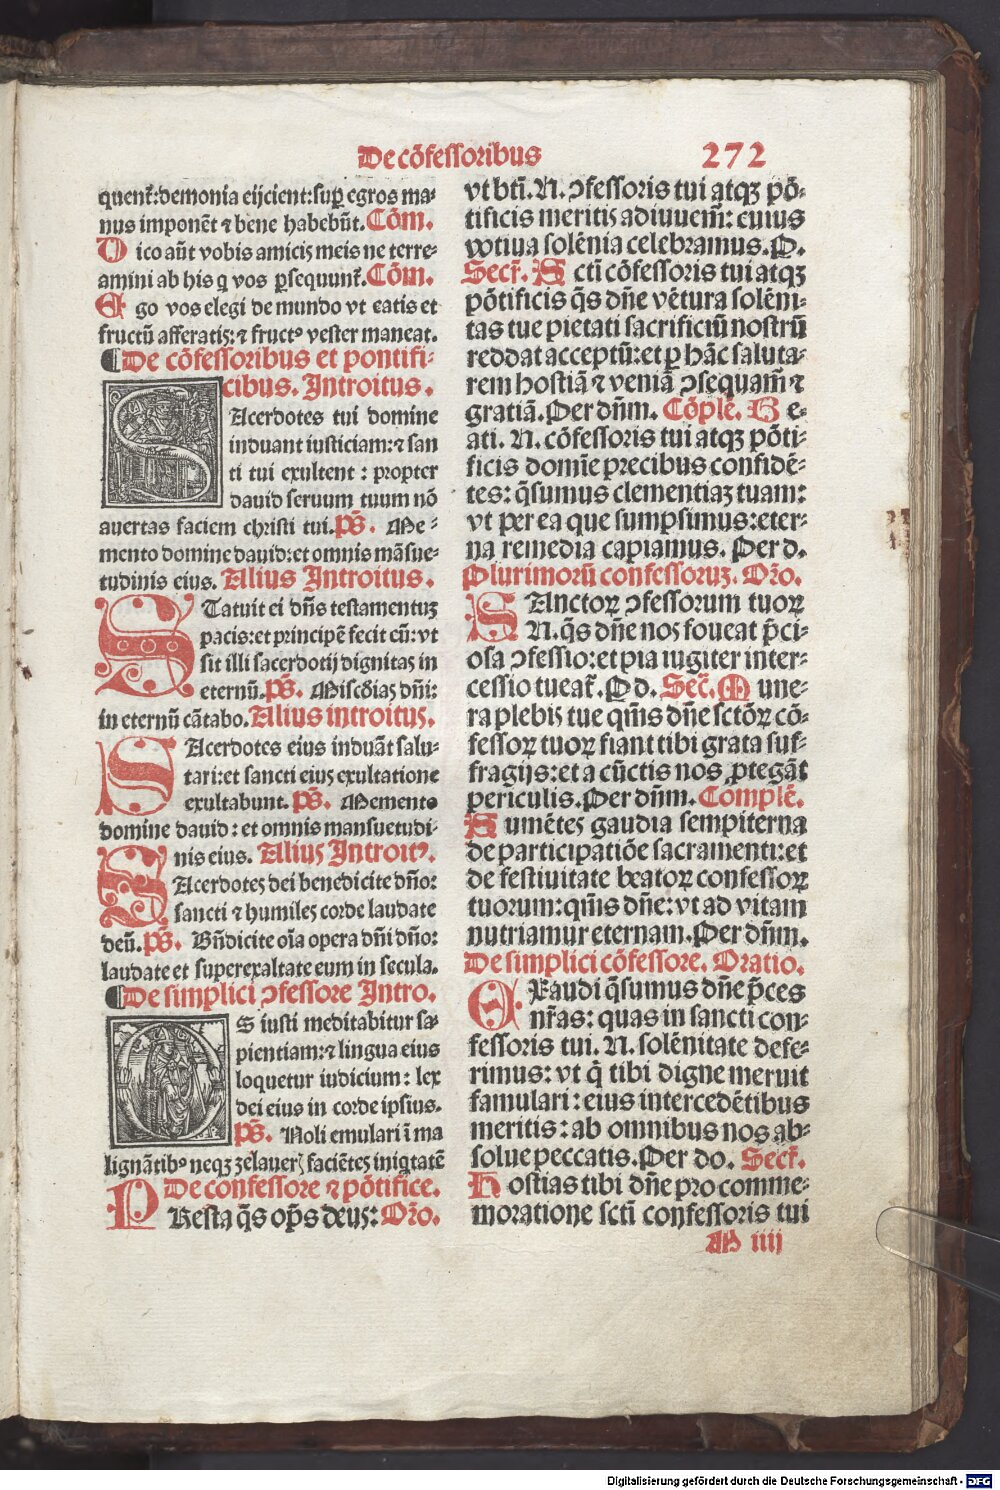 De cõfessoribus 272
quent᷑: demonia eijcient: sup̱ egros ma-
nus imponẽt ⁊ bene habebũt. Cõm.
Dico aũt vobis amicis meis ne terre-
amini ab his q̃ vos ꝑsequunt᷑. Cõm.
Ego vos elegi de mundo vt eatis et
fructũ afferatis: ⁊ fructꝰ vester maneat.
¶ De cõfessoribus et pontifi-
cibus. Introitus.
SAcerdotes tui domine
induant iusticiam: ⁊ san
ti tui exultent: propter
dauid seruum tuum nõ
auertas faciem christi tui. p̃s. Me-
mento domine dauid: et omnis mãsue-
tudinis eius. Alius Introitus.
STatuit ei dñs testamentuꝫ
pacis: et principẽ fecit eũ: vt
sit illi sacerdotij dignitas in
eternũ. p̃s. Miscd̃ias dñi:
in eternũ cãtabo. Alius introitus.
SAcerdotes eius induãt salu-
tari: et sancti eius exultatione
exultabunt. p̃s. Memento
domine dauid: et omnis mansuetudi-
nis eius. Alius Introitꝰ.
SAcerdotes dei benedicite dño:
sancti ⁊ humiles corde laudate
deũ. p̃s. Bñdicite oĩa opera dñi dño:
laudate et superexaltate eum in secula.
¶ De simplici ↄfessore Intro.
OS iusti meditabitur sa-
pientiam: ⁊ lingua eius
loquetur iudicium: lex
dei eius in corde ipsius.
p̃s. Noli emulari ĩ ma
lignãtibꝰ neqꝫ zelauerꝭ faciẽtes iniq̃tatẽ
De confessore ⁊ põtifice.
PResta q̃s op̃s deus: Orõ.
vt bti̾. N. ↄfessoris tui atqꝫ põ-
tificis meritis adiuuem᷑: cuius
votiua solẽnia celebramus. P.
Secr̃. Scti̾ cõfessoris tui atqꝫ
põtificis q̃s dñe vẽtura solẽni-
tas tue pietati sacrificiũ nostrũ
reddat acceptũ: et ꝑ hãc saluta-
rem hostiã ⁊ veniã ↄsequam᷑ ⁊
gratiã. Per dñm. Cõplẽ. Be-
ati. N. cõfessoris tui atqꝫ põti-
ficis domĩe precibus confidẽ-
tes: q̃sumus clementiaꝫ tuam:
vt per ea que sumpsimus: eter-
na remedia capiamus. Per d.
Plurimorũ confessoruꝫ. Orõ.
SAnctoꝝ ↄfessorum tuoꝝ
N. q̃s dñe nos foueat p̃ci-
osa ↄfessio: et pia iugiter inter-
cessio tueat᷑. P d. Secr̃. Mune-
ra plebis tue qm̃s dñe sctõꝝ cõ-
fessoꝝ tuoꝝ fiant tibi grata suf-
fragijs: et a cũctis nos ꝓtegãt
periculis. Per dñm. Complẽ.
Sumẽtes gaudia sempiterna
de participatiõe sacramenti: et
de festiuitate beatoꝝ confessoꝝ
tuorum: qm̃s dñe: vt ad vitam
nutriamur eternam. Per dñm.
De simplici cõfessore. Oratio.
EXaudi q̃sumus dñe p̃ces
nr̃as: quas in sancti con-
fessoris tui. N. solẽnitate defe-
rimus: vt q̃ tibi digne meruit
famulari: eius intercedẽtibus
meritis: ab omnibus nos ab-
solue peccatis. Per do. Secr̃.
Hostias tibi dñe pro comme-
moratione scti̾ confessoris tui
M iiij
Digitalisierung gefördert durch die Deutsche Forschungsgemeinschaft - DFG